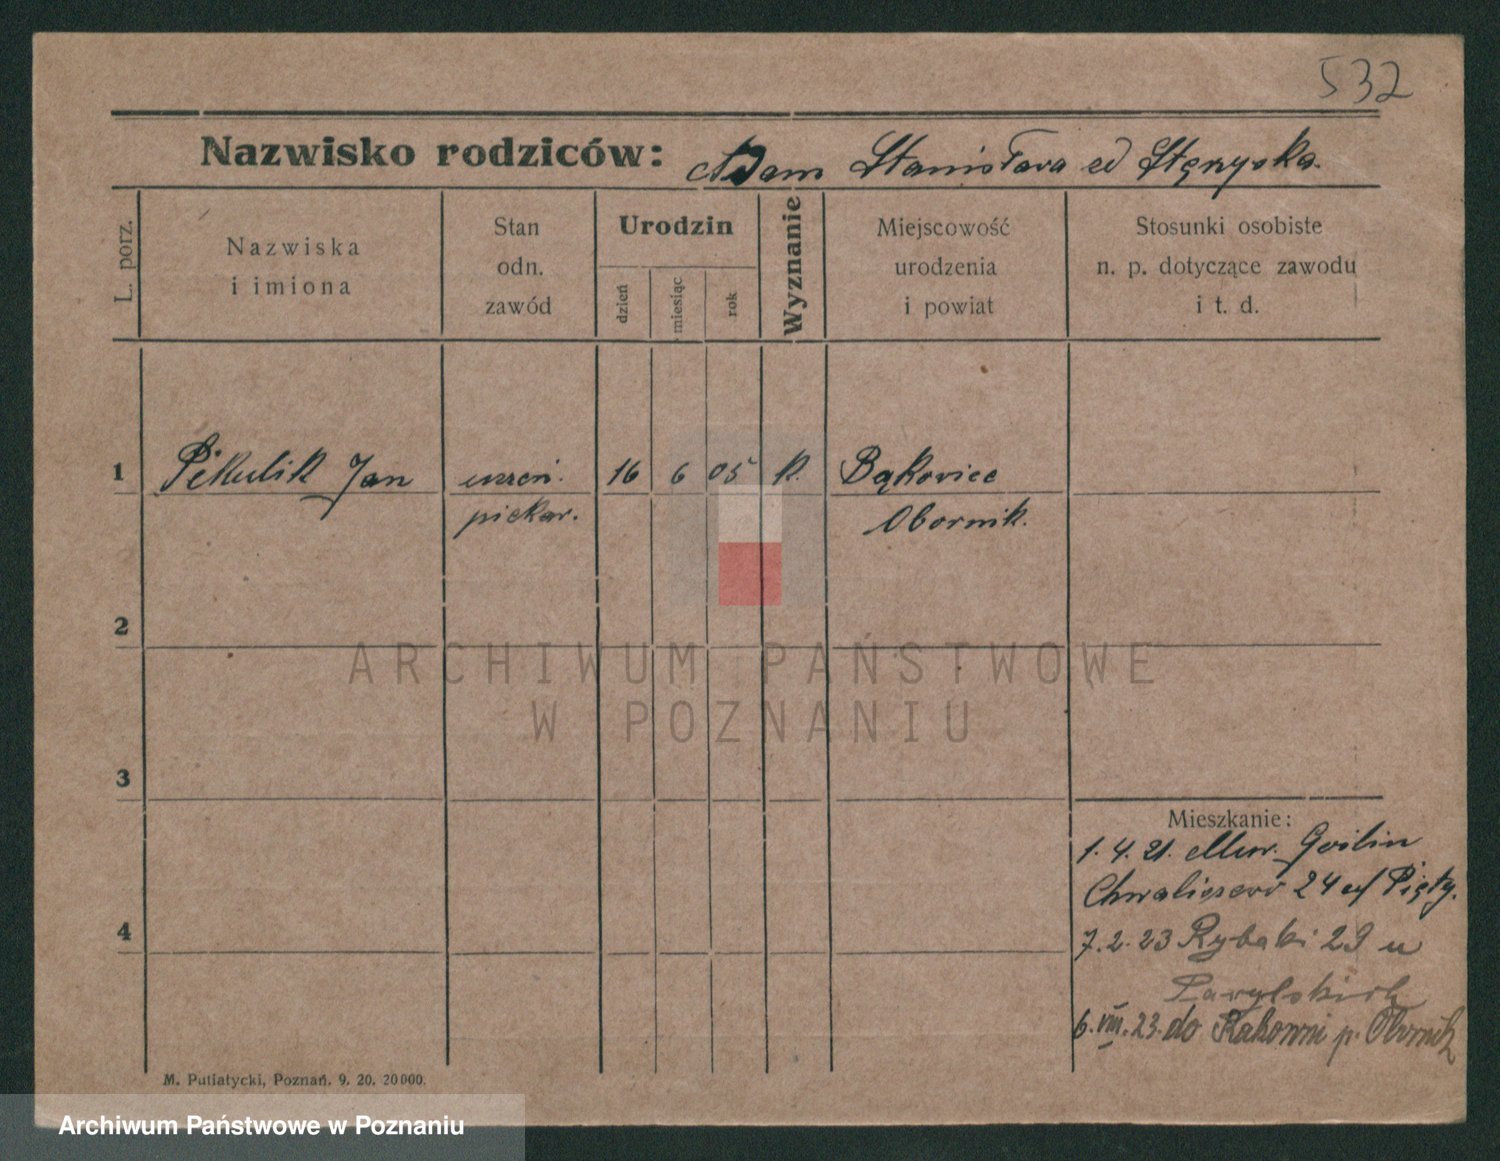 532
Nazwisko rodziców: Adam Stanisława
L. porz.
Nazwiska
i imiona
Stan
odn.
zawód
Urodzin
dzień
miesiąc
rok
Wyznanie
Miejscowość
urodzenia
i powiat
Stosunki osobiste
n. p. dotyczące zawodu
i t. d.
1 Pikulik Jan 16 6 05 k. Bąkovice
piekar. Obornik.
2
3
4
ARCHIWUM PAŃSTWOWE
W POZNANIU
Mieszkanie:
1. 4. 21.
24
7. 2. 23 Rybaki 29 u
6. VIII. 23. do p. Obornik
M. Putiatycki, Poznań. 9. 20. 20000.
Archiwum Państwowe w Poznaniu